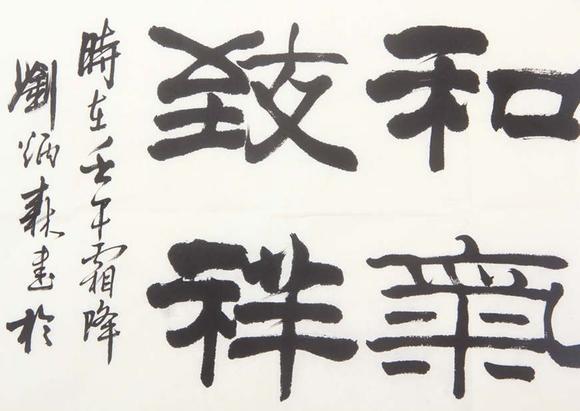 和氣
致祥
時在壬午霜降
劉炳森書於